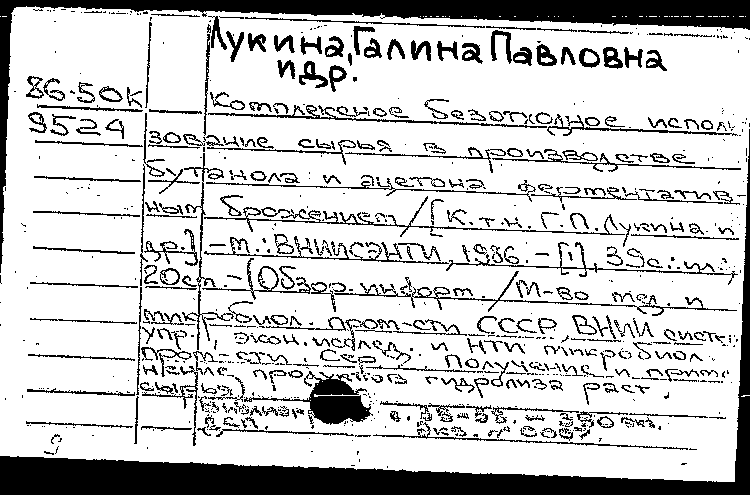 Лукина, Галина Павловна
и др.
86-50К
9524
Комплексное безотходное исполь
зование сырья в производстве
бутанола и ацетона ферментатив-
ным брожением / [К.т.н. Г.П. Лукина и
др.]. - М.: ВНИИСЭНТИ, 1986. - [1], 39с.: ил.;
20см. - (Обзор. информ. / М-во мед. и
микробиол. пром-сти СССР, ВНИИ систем
упр., экон. исслед. и НТИ микробиол.
пром-сти. Сер. Получение и приме
нение продуктов гидролиза раст.
сырья).
с. 33-35. - 350 экз.
Экз. №
9